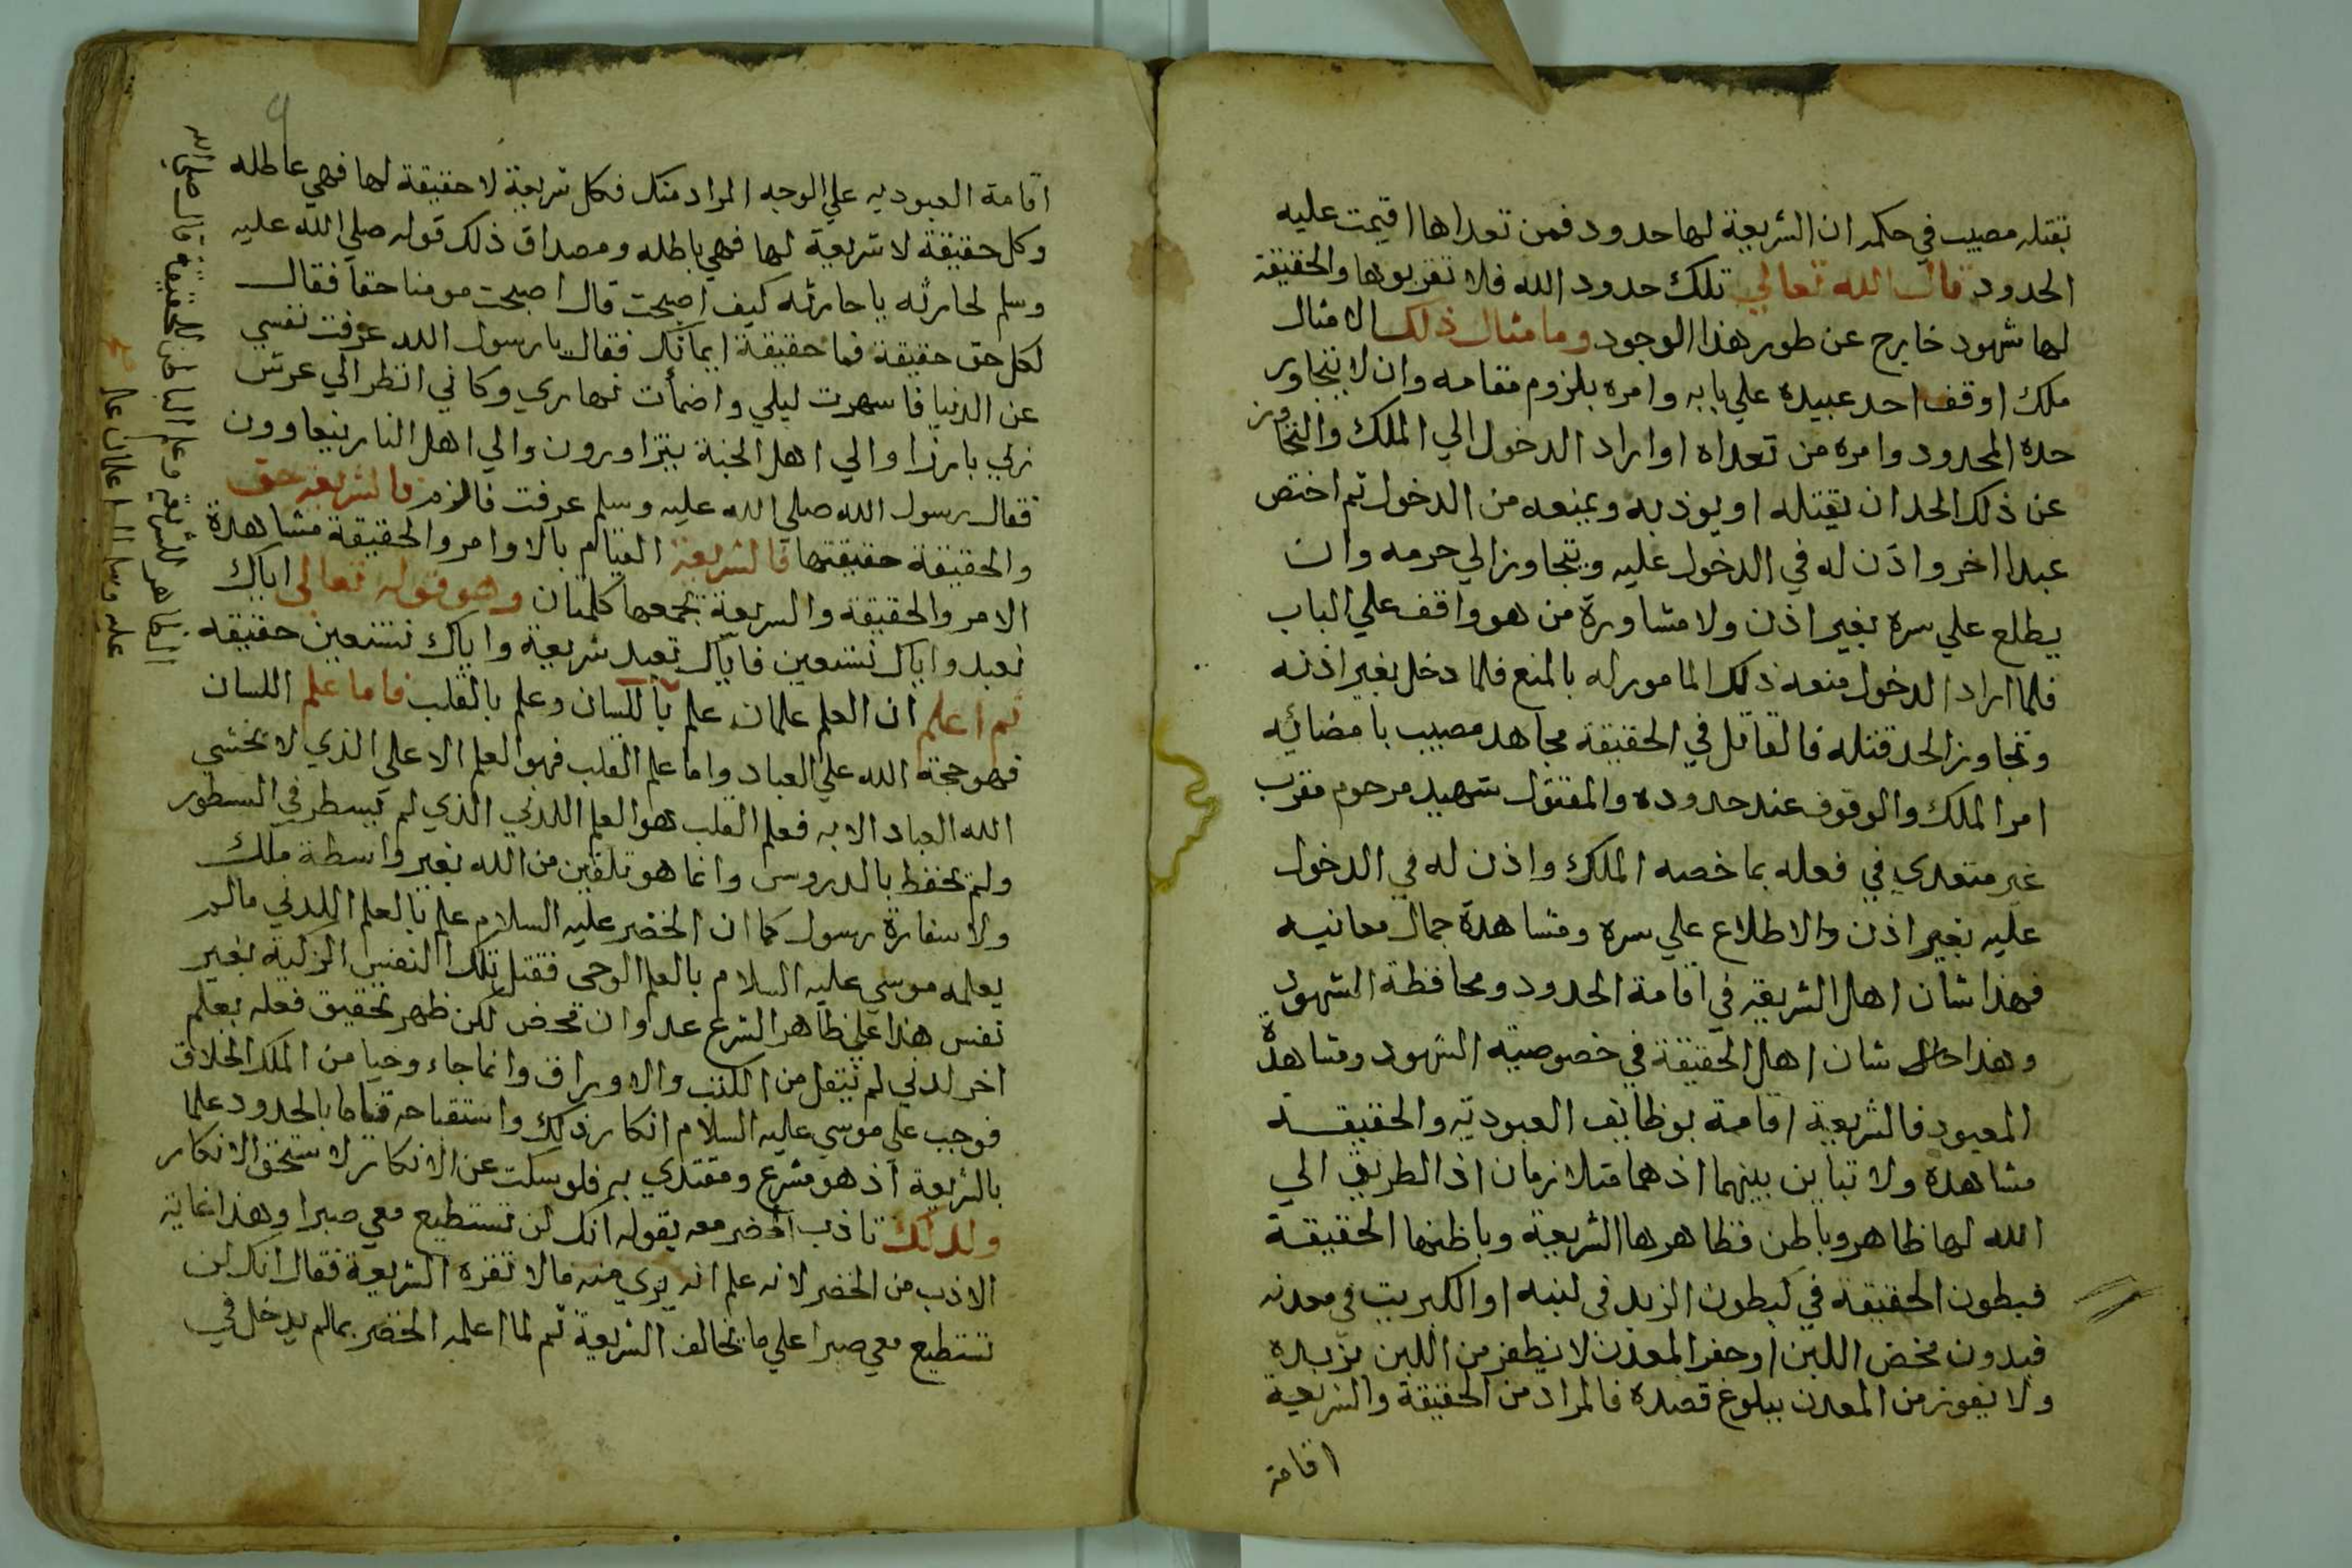 بقتله مصيب في حكمه ان الشريعة لها حدود فمن تعداها اقيمت عليه
الحدود قال الله تعالي تلك حدود الله فلا تقربوها والحقيقة
لها شهود خارج عن طور هذا الوجود وما مثال ذلك الا مثال
ملك اوقف احد عبيده علي بابه وامره بلزوم مقامه وان لا يتجاوز
حده المحدود وامره من تعداه او اراد الدخول الي الملك والتجاوز
عن ذلك الحد ان يقتله او يوذبه ويمنعه من الدخول ثم اختص
عبدا اخر واذن له في الدخول عليه ويتجاوز الي حرمه وان
يطلع علي سره بغير اذن ولا مشاورة من هو واقف علي الباب
فلما اراد الدخول منعه ذلك المامور له بالمنع فلما دخل بغير اذنه
وتجاوز الحد قتله فالقاتل في الحقيقة مجاهد مصيب بامضائيه
امر الملك والوقوف عند حدوده والمقتول شهيد مرحوم مقرب
غير متعدي في فعله بما خصه الملك واذن له في الدخول
عليه بغير اذن والاطلاع علي سره ومشاهدة جمال معانيه
فهذا شان اهل الشريعة في اقامة الحدود ومحافظة الشهود
وهذا شان اهل الحقيقة في خصوصية الشهود ومشاهدة
المعبود فالشريعة اقامة بوظايف العبودية والحقيقة
مشاهدة ولا تباين بينهما اذ هما متلازمان اذ الطريق الي
الله لها ظاهر وباطن فظاهرها الشريعة وباطنها الحقيقة
فبطون الحقيقة في كبطون الزبد في لبنه او الكبريت في معدنه
فبدون مخض اللبن او حفر المعدن لا يظفر من اللبن بزبده
ولا يفوز من المعدن ببلوغ قصده فالمراد من الحقيقة والشريعة
اقامة
٩
اقامة العبوديه علي الوجه المراد منك فكل شريعة لا حقيقة لها فهي عاطله
وكل حقيقة لا شريعة لها فهي باطله ومصداق ذلك قوله صلي الله عليه
وسلم لحارثه يا حارثه كيف اصبحت قال اصبحت مومنا حقا فقال
لكل حق حقيقة فما حقيقة ايمانك فقال يا رسول الله عزفت نفسي
عن الدنيا فاسهرت ليلي واضمأت نهاري وكاني انظر الي عرش
ربي بارزا والي اهل الجنة يتزاورون والي اهل النار يتعاوون
فقال رسول الله صلي الله عليه وسلم عرفت فالزم فالشريعه حق
والحقيقة حقيقتها فالشريعة القيام بالاوامر والحقيقة مشاهدة
الامر والحقيقة والشريعة تجمعها كلمتان وهو قوله تعالي اياك
نعبد واياك نستعين فاياك نعبد شريعة واياك نستعين حقيقه
ثم اعلم ان العلم علمان علم باللسان وعلم بالقلب فاما علم اللسان
فهو حجة الله علي العباد واما علم القلب فهو العلم الاعلي الذي لا تخشي
الله العباد الا به فعلم القلب هو العلم اللدني الذي لم يسطر في السطور
ولم يحفظ بالدروس وانما هو تلقين من الله بغير واسطة ملك
ولا سفارة رسول كما ان الخضر عليه السلام علم بالعلم اللدني مالم
يعلمه موسي عليه السلام بالعلم الوحي فقتل تلك النفس الزكية بغير
نفس هذا علي ظاهر الشرع عدوان محض لكن ظهر تحقيق فعله بعلم
اخر لدني لم ينقل من الكتب والاوراق وانما جاء وحيا من الملك الخلاق
فوجب علي موسي عليه السلام انكار ذلك واستقباحه قياما بالحدود علما
بالشريعة اذ هو مشرع ومقتدي به فلو سكت عن الانكار لاستحق الانكار
ولذلك تاذب الخضر معه بقوله انك لن تستطيع معي صبرا وهذا غاية
الاذب من الخضر لانه علم انه يري منه مالا تقره الشريعة فقال انك لن
تستطيع معي صبرا علي ما تخالف الشريعة ثم لما اعلمه الخضر بمالم يدخل في
الظاهر الشريعة وعلم الباطن الحقيقة قال صلي الله
عليه وسلم العلم علمان علم